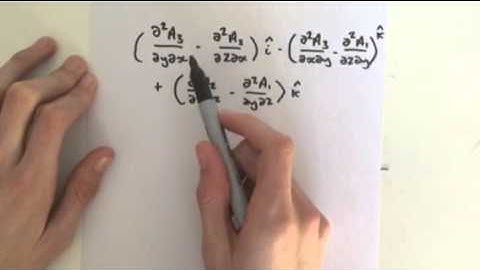 ( ∂²A₃/∂y∂x - ∂²A₂/∂z∂x ) î - ( ∂²A₃/∂x∂y - ∂²A₁/∂z∂y ) k̂
+ ( - ∂²A₁/∂y∂z ) k̂